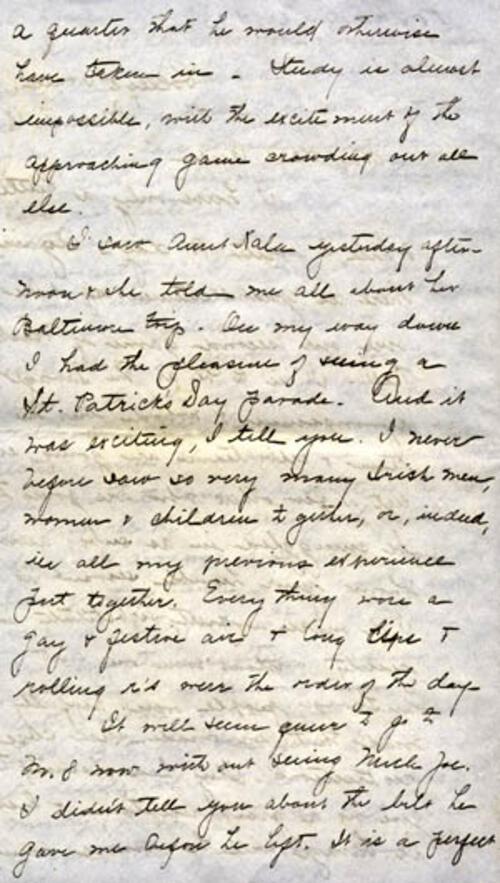 a quarter that he would otherwise
have taken in - Study is almost
impossible, with the excitement of the
approaching game crowding out all
else.
I saw Aunt Kala yesterday after-
noon & she told me all about her
Baltimore trip. On my way down
I had the pleasure of seeing a
St. Patricks Day parade. And it
was exciting, I tell you. I never
before saw so very many Irish men,
women & children together, or, indeed,
in all my previous experience
put together. Every thing wore a
gay & festive air & long lips &
rolling r's were the order of the day -
It will seem queer to go to
now without seeing Uncle Joe.
I didn't tell you about the belt he
gave me before he left. It is a perfect